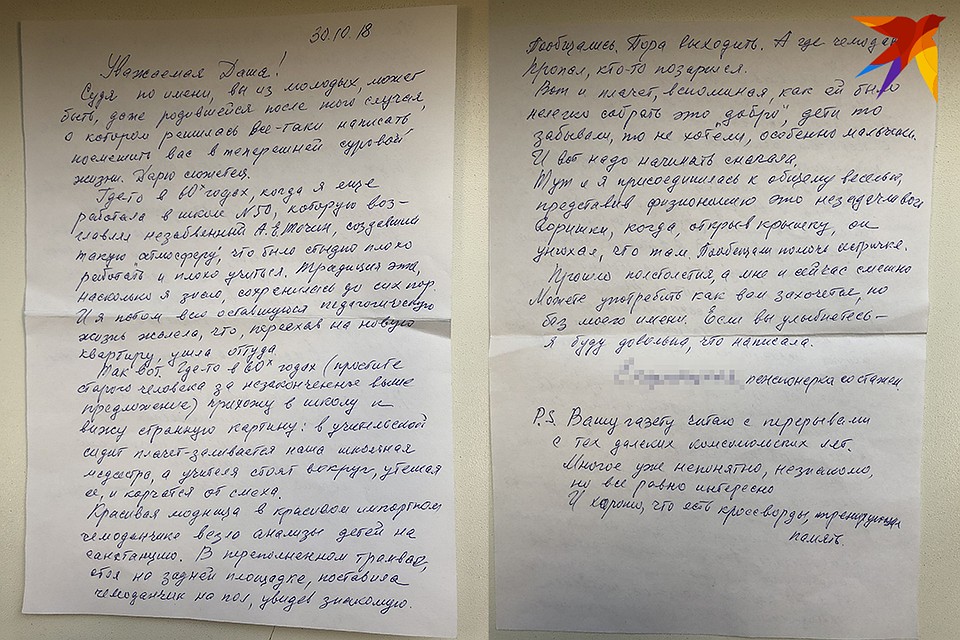 30.10.18
Уважаемая Даша!
Судя по имени, вы из молодых, может
быть, даже родившейся после того случая,
о котором решилась все-таки написать
посмешить вас в теперешней суровой
жизни. Дарю сюжетец.
Где-то в 60х годах, когда я еще
работала в школе №50, которую воз-
главлял незабвенный А.Е.Точин, создавший
такую атмосферу, что было стыдно плохо
работать и плохо учиться. Традиция эта,
насколько я знаю, сохранилась до сих пор.
И я потом всю оставшуюся педагогическую
жизнь жалела, что, переехав на новую
квартиру, ушла оттуда.
Так вот, где-то в 60х годах (простите
старого человека за незаконченное выше
предложение) прихожу в школу и
вижу странную картину: в учительской
сидит плачет-заливается наша школьная
медсестра, а учителя стоят вокруг, утешая
ее, и корчатся от смеха.
Красивая модница в красивом импортном
чемоданчике везла анализы детей на
санстанцию. В переполненном трамвае,
стоя на задней площадке, поставила
чемоданчик на пол, увидев знакомую.
Пообщались. Пора выходить. А где чемодан
Пропал, кто-то позарился.
Вот и плачет, вспоминая, как ей было
нелегко собрать это "добро", дети то
забывали, то не хотели, особенно мальчики.
И вот надо начинать сначала.
Тут и я присоединилась к общему веселью,
представив физиономию это незадачливого
воришки, когда, открыв крышку, он
унюхал, что там. Пообещали помочь сестричке.
Прошло полстолетия, а мне и сейчас смешно
Можете употребить как вам захочется, но
без моего имени. Если вы улыбнетесь -
я буду довольна, что написала.
пенсионерка со стажем
P.S. Вашу газету читаю с перерывами
с тех далеких комсомольских лет.
Многое уже непонятно, незнакомо,
но все равно интересно
И хорошо, что есть кроссворды, тренирующи
память.